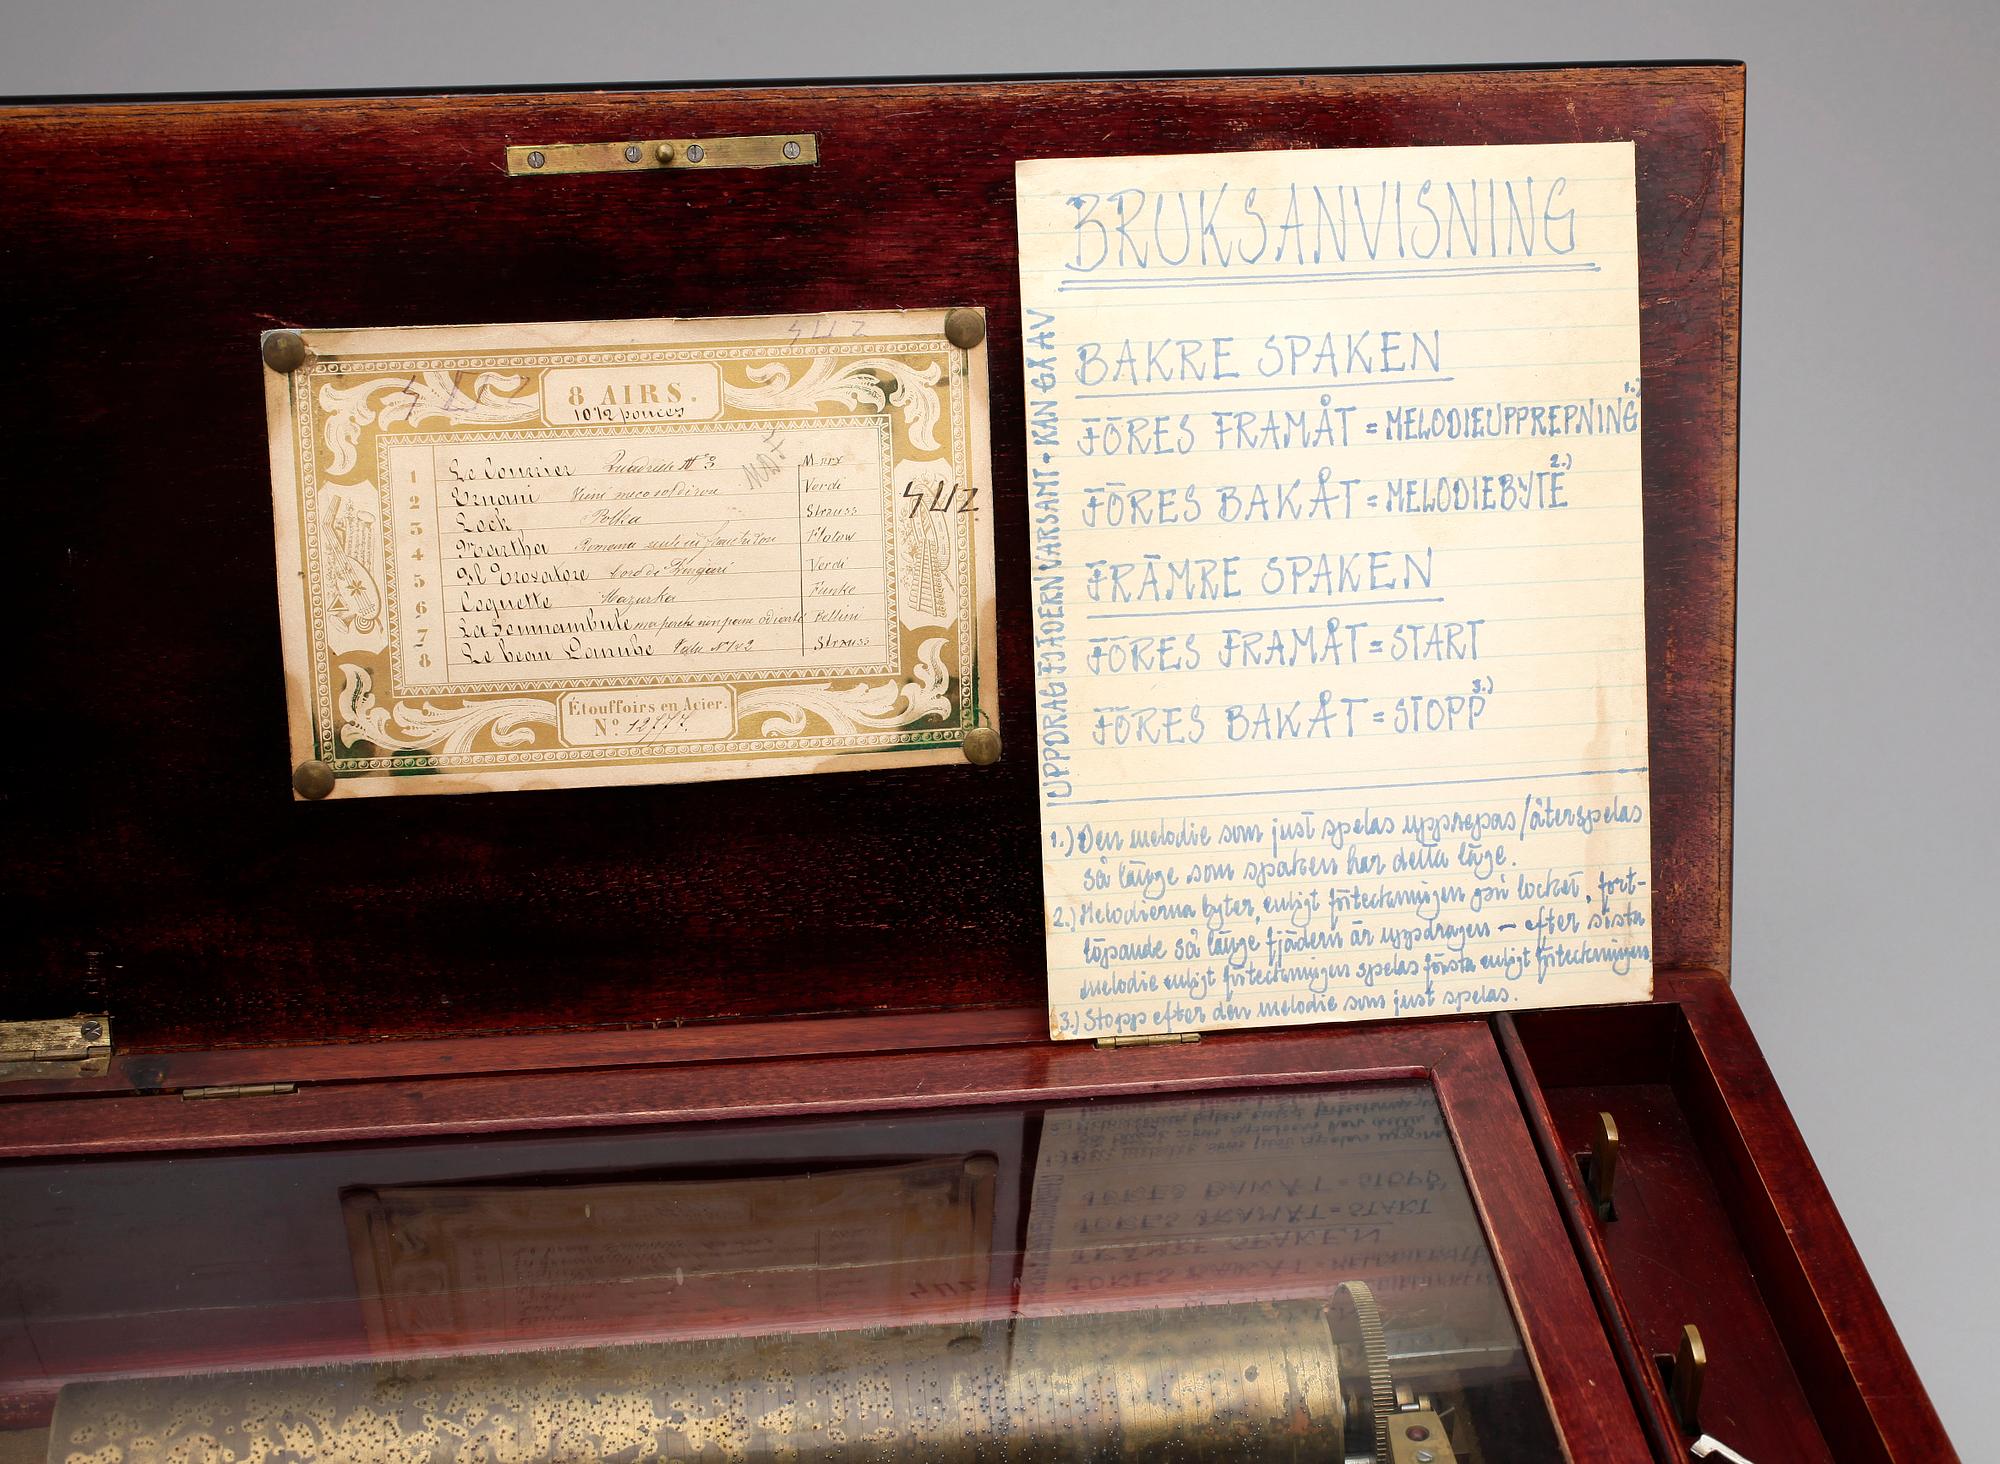 8 AIRS.
10 1/2 pouces
1 Le Courrier Quadrille No 3 Marx
2 Ernani Verdi
3 Lock Polka Strauss
4 Martha Romance Flotow
5 Il Trovatore Coro di Zingari Verdi
6 Coquette Mazurka Funke
7 La Somnambule Bellini
8 Le beau Danube Valse No 1 & 2 Strauss
Étouffoirs en Acier.
No. 12777.
BRUKSANVISNING
BAKRE SPAKEN
FÖRES FRAMÅT = MELODIEUPPREPNING 1.)
FÖRES BAKÅT = MELODIEBYTE 2.)
FRÄMRE SPAKEN
FÖRES FRAMÅT = START
FÖRES BAKÅT = STOPP 3.)
UPPDRAG FJÄDERN VARSAMT - KAN GÅ AV
1.) Den melodie som just spelas upprepas/återspelas
så länge som spaken har detta läge.
2.) Melodierna byter, enligt förteckningen på locket, fort-
löpande så länge fjädern är uppdragen – efter sista
melodie enligt förteckningen spelas första enligt förteckningen
3.) Stopp efter den melodie som just spelas.